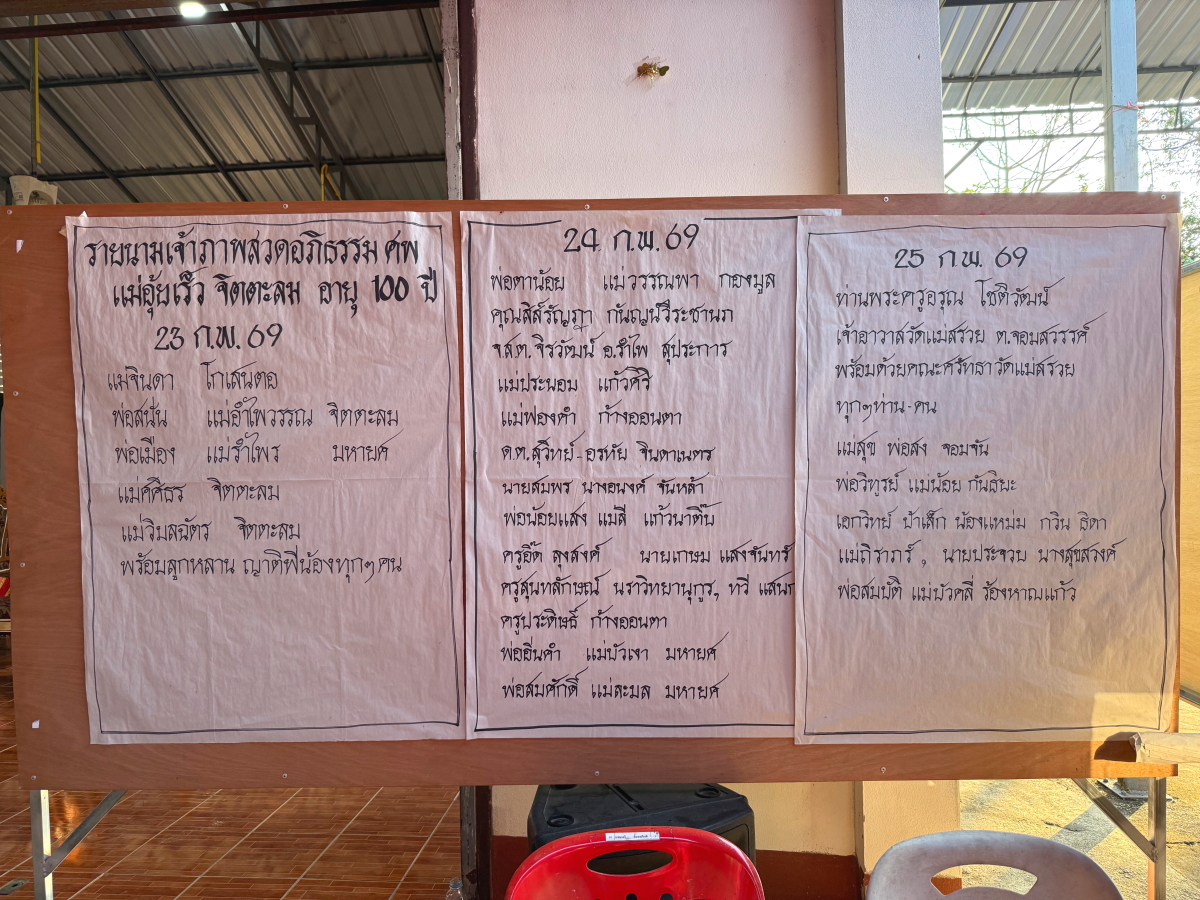 รายนามเจ้าภาพสวดอภิธรรม ศพ
แม่อุ้ยเร็ว จิตตะลม อายุ 100 ปี
23 ก.พ. 69
แม่จินดา โกเสนตอ
พ่อสนั่น แม่อำไพวรรณ จิตตะลม
พ่อเมือง แม่รำไพร มหายศ
แม่ศศิธร จิตตะลม
แม่วิมลฉัตร จิตตะลม
พร้อมลูกหลาน ญาติพี่น้องทุกๆคน
24 ก.พ. 69
พ่อตาน้อย แม่วรรณพา กองมูล
คุณสิส์รัญญา กันญน์วีระชานภ
จ.ส.ต.จิรวัฒน์ อ.รำไพ สุประการ
แม่ประนอม แก้วศิริ
แม่ฟองคำ ก้างออนตา
ด.ต.สุวิทย์-อรหัย จินดาเนตร
นายสมพร นางอนงค์ จันหล้า
พ่อน้อยแสง แม่สี แก้วนาติ๊บ
ครูอี๊ด ลุงสงค์ นายเกษม แสงจันทร์
ครูสุนทลักษณ์ นราวิทยานุกูร, ทวี
ครูประดิษธ์ ก้างออนตา
พ่ออิ่นคำ แม่บัวเงา มหายศ
พ่อสมศักดิ์ แม่ละมล มหายศ
25 ก.พ. 69
ท่านพระครูอรุณ โชติวัฒน์
เจ้าอาวาสวัดแม่สรวย ต.จอมสวรรค์
พร้อมด้วยคณะศรัทธาวัดแม่สรวย
ทุกๆท่าน-คน
แม่สุข พ่อสง จอมจัน
พ่อวิทูรย์ แม่น้อย กันธิยะ
เอกวิทย์ ป้าเล็ก น้องแหม่ม กวิน ธิดา
แม่ถิราภรร์, นายประจวบ นางสุขสวงค์
พ่อสมบัติ แม่บัวคลี่ ร้องหาญแก้ว